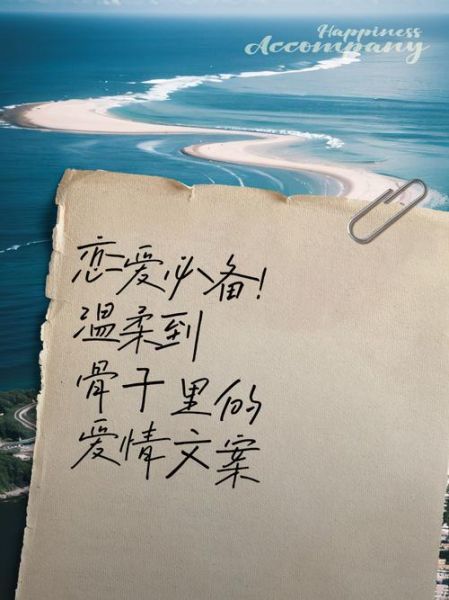 Happiness
Accompany
恋爱必备!
温柔到
骨子里的
爱情文案